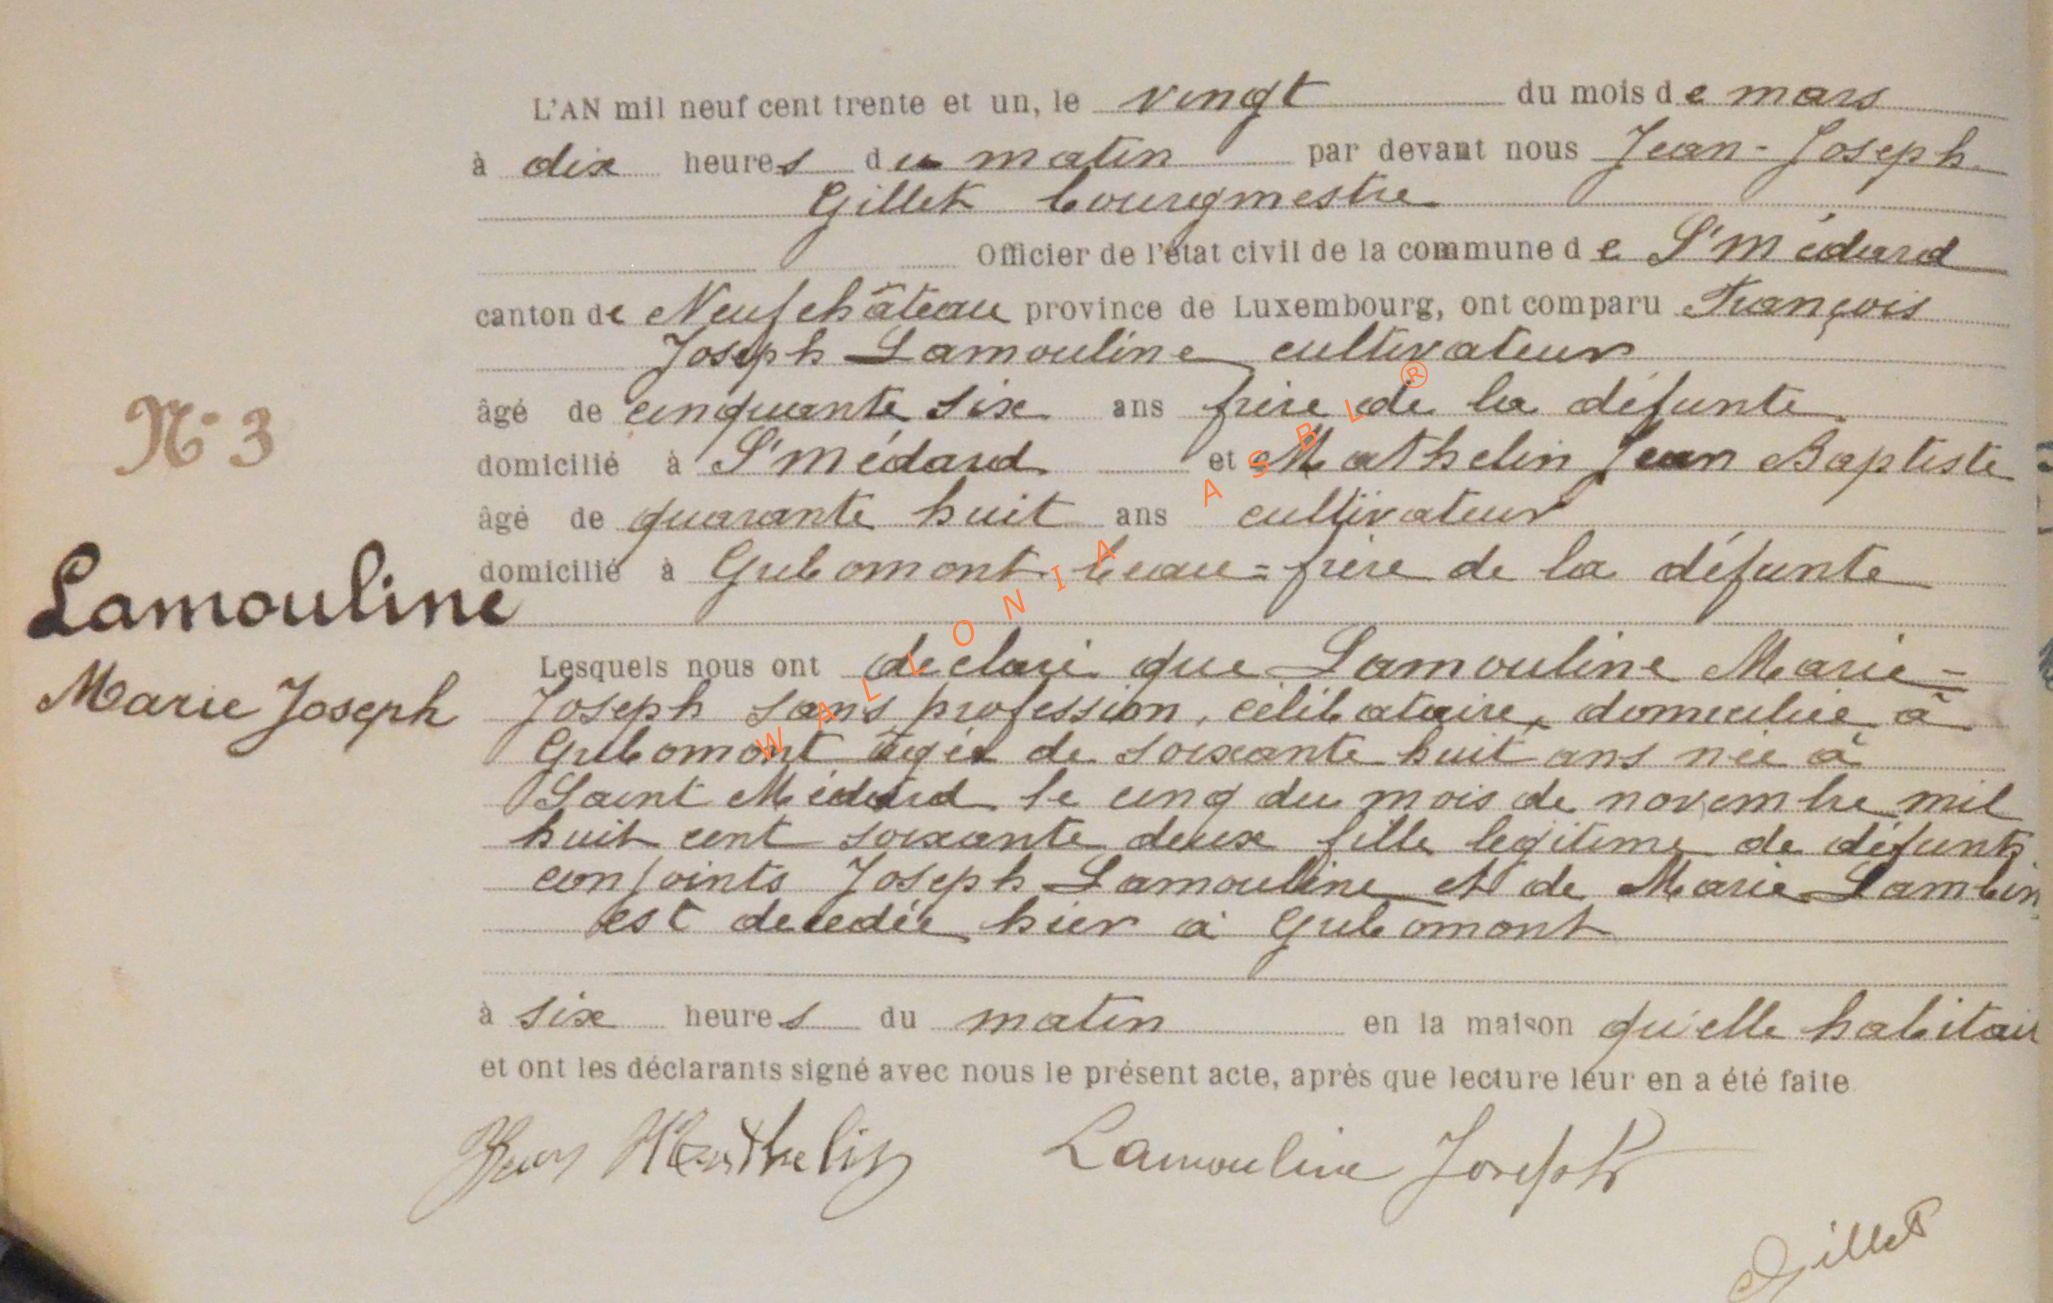 L'AN mil neuf cent trente et un, le vingt du mois de mars
à dix heures du matin par devant nous Jean-Joseph
Gillet bourgmestre
Officier de l'état civil de la commune de St Médard
canton de Neufchâteau province de Luxembourg, ont comparu François
Joseph Lamouline cultivateur
âgé de cinquante six ans frère de la défunte
N° 3
domicilié à St Médard et Mathelin Jean Baptiste
âgé de quarante huit ans cultivateur
domicilié à Gribomont beau=frère de la défunte
Lamouline
Marie Joseph
Lesquels nous ont déclaré que Lamouline Marie-
Joseph sans profession, célibataire, domiciliée à
Gribomont âgée de soixante huit ans née à
Saint Médard le cinq du mois de novembre mil
huit cent soixante deux fille légitime de défunts
conjoints Joseph Lamouline et de Marie Lambin
est decedée hier à Gribomont
à six heures du matin en la maison qu'elle habitait
et ont les déclarants signé avec nous le présent acte, après que lecture leur en a été faite
Jean Mathelin Lamouline Joseph
Gillet
WALLONIA ASBL ®